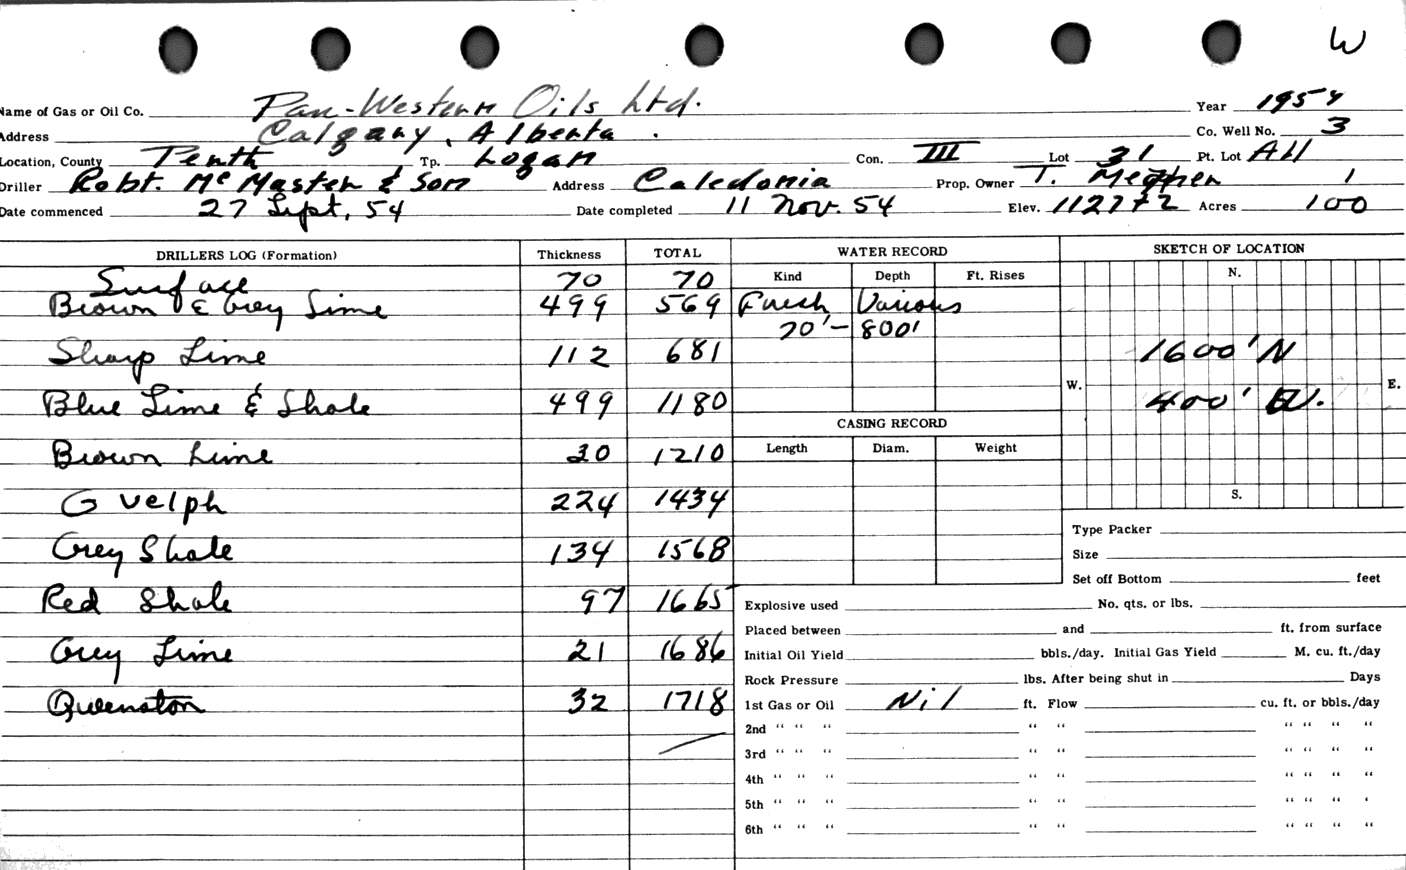 W
Name of Gas or Oil Co. Pan-Western Oils Ltd. Year 1954
Address Calgary, Alberta. Co. Well No. 3
Location, County Perth Tp. Logan Con. III Lot 31 Pt. Lot All
Driller Robt. McMaster & Son Address Caledonia Prop. Owner T. 1
Date commenced 27 Sept, 54 Date completed 11 Nov. 54 Elev. Acres 100
DRILLERS LOG (Formation) Thickness TOTAL WATER RECORD SKETCH OF LOCATION
Surface 70 70 Kind Depth Ft. Rises N.
Brown & Grey Lime 499 569 Fresh Various
20'- 800'
Sharp Lime 112 681 1600' N
W. E.
Blue Lime & Shale 499 1180 400'
CASING RECORD
Brown Lime 30 1210 Length Diam. Weight
Guelph 224 1434 S.
Type Packer
Grey Shale 134 1568 Size
Set off Bottom feet
Red Shale 97 1665 Explosive used No. qts. or lbs.
Placed between and ft. from surface
Grey Lime 21 1686 Initial Oil Yield bbls./day. Initial Gas Yield M. cu. ft./day
Rock Pressure lbs. After being shut in Days
Queenston 32 1718 1st Gas or Oil Nil ft. Flow cu. ft. or bbls./day
2nd " " " " " " " " "
3rd " " " " " " " " "
4th " " " " " " " " "
5th " " " " " " " " '
6th " " " " " " " " "